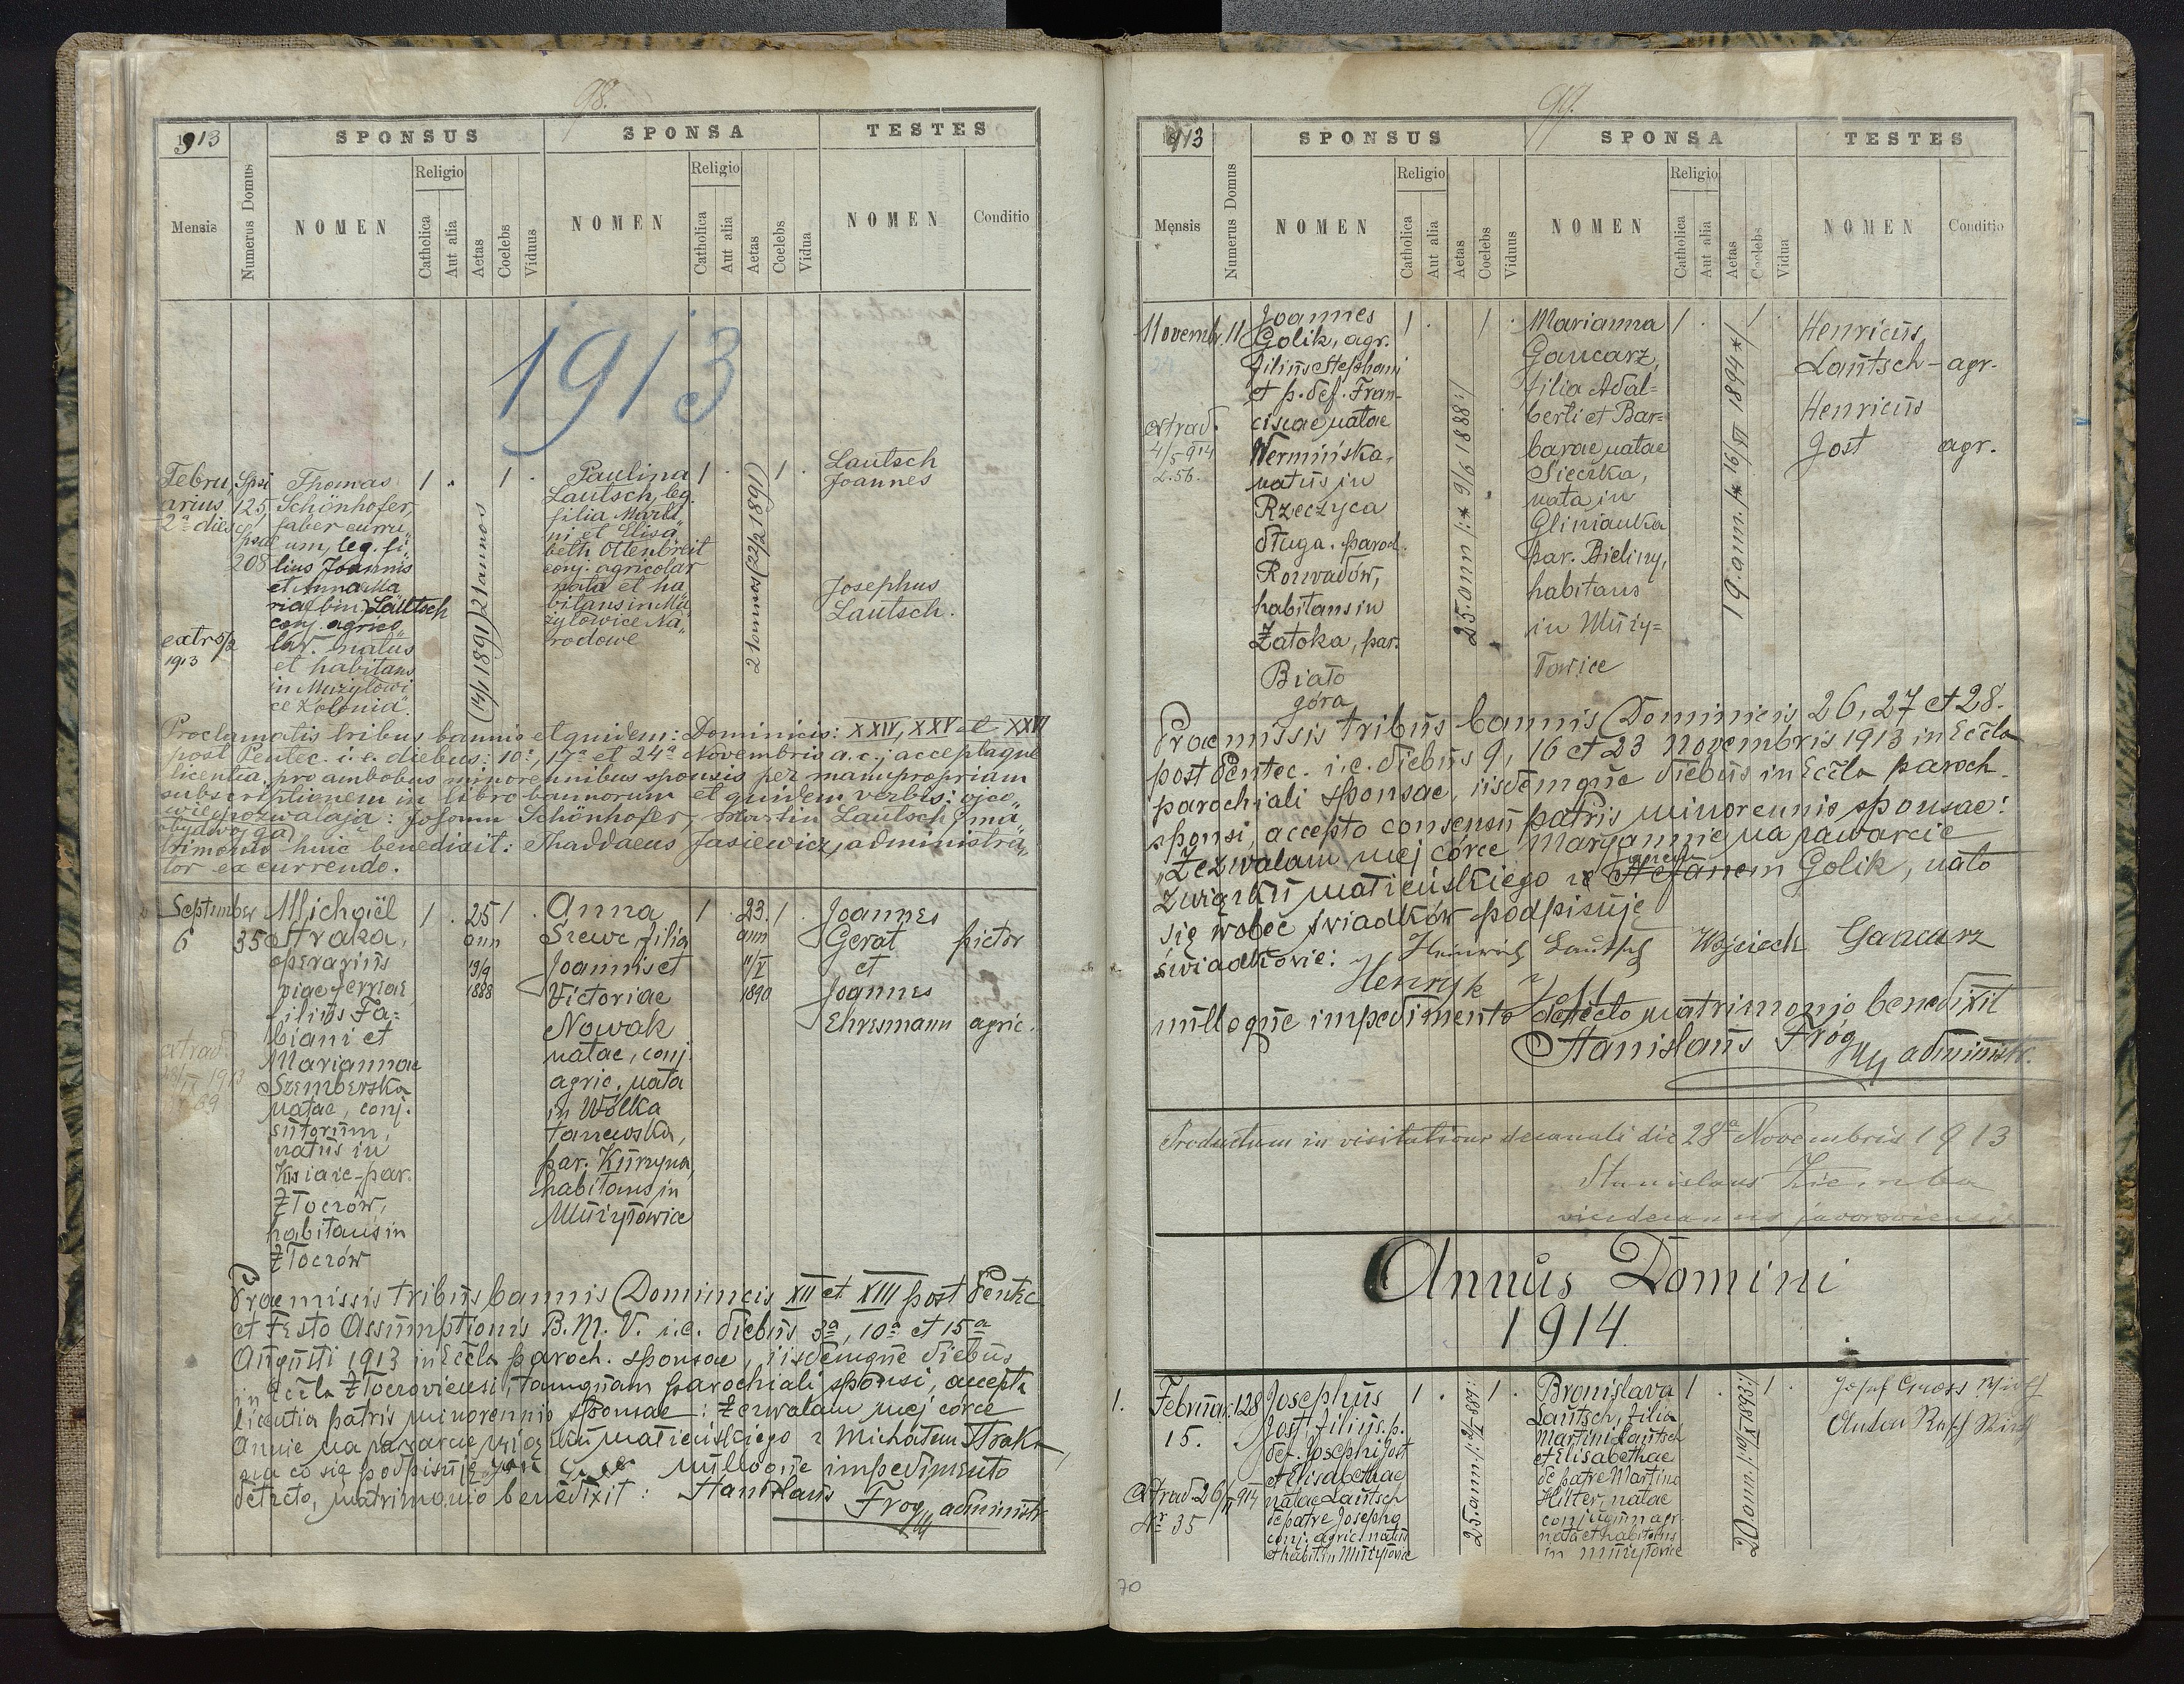 98.
1913
SPONSUS
SPONSA
TESTES
Mensis
Numerus Domus
NOMEN
Religio
Catholica
Aut alia
Aetas
Coelebs
Viduus
NOMEN
Religio
Catholica
Aut alia
Aetas
Coelebs
Vidua
NOMEN
Conditio
1913
Febru,,
arius
2a dies
Spsi
125
208
extr 5/2
1913
Thomas
Schönhofer,
faber curru,,
um, leg. fi,,
lius Joannis
et Anna Ma
ria Lautsch
conj. agrico,,
lar. natus
et habitans
in Muzyłowi
ce Kolonia.
1 . 1 .
(14/1 1891) 21 annos
Paulina
Lautsch, leg.
filia Marti,,
ni et Elisa,,
beth Ottenbreit
conj. agricolar
nata et ha
bitans in Mu
zyłowice Na,,
rodowe
1 . 1 .
21 annos (22/2 1891)
Lautsch
Joannes
Josephus
Lautsch.
Proclamatis tribus bannis et quidem: Dominicis: XXIV, XXV et XXVI
post Pentec. i. e. diebus: 10a, 17a et 24a Novembris a. c.; acceptaque
licentia pro ambobus minorennibus sponsis per manupropriam
subscriptionem in libro bannorum et quidem verbis: ojco,,
wie pozwalają: Johann Schönhofer, Martin Lautsch, ma,,
trimonio huic benedixit: Thaddaeus Jasiewicz, administra,,
tor ex currendo.
September
6
350
Michaël
Straka,
operarius
viae ferreae
filius Fa=
biani et
Mariannae
Szemberska
natae, conj.
sutorum,
natus in
Kniaże-par.
Złoczów,
habitans in
Złoczów
1 . 25 1 .
ann
19/9
1888
Anna
Szewc, filia
Joannis et
Victoriae
Nowak
natae, conj.
agric. nata
in Wólka
tanewska,
par. Kurzyna,
habitans in
Mużyłowice
1 . 23. 1 .
ann
11/V
1890
Joannes
Gerat pictor
et
Joannes
Ehresmann agric.
extrad.
1913
Praemissis tribus bannis Dominicis XII et XIII post Pentec
et Festo Assumptionis B. M. V. i.e. diebus 3a, 10a et 15a
Augusti 1913 in Eccla paroch. sponsae, iisdemque diebus
in Eccla Złoczoviensi, tamquam parochiali sponsi, accepta
licentia patris minorennis sponsae: Zezwalam mej córce
Annie na zawarcie związku małżeńskiego z Michałem Straka,
na co się podpisuję nulloque impedimento
detecto, matrimonio benedixit: Stanislaus
Frog administr.
97.
1913
SPONSUS
SPONSA
TESTES
Mensis
Numerus Domus
NOMEN
Religio
Catholica
Aut alia
Aetas
Coelebs
Viduus
NOMEN
Religio
Catholica
Aut alia
Aetas
Coelebs
Vidua
NOMEN
Conditio
Novemb.
11
extrad.
4/5 914
L. 56.
Joannes
Golik, agr.
filius Stephani
et p. def. Fran-
ciscae natae
Wermińska,
natus in
Rzeczyca
długa. paroch.
Rozwadów,
habitans in
Zatoka, par.
Biało
góra
1 . 1 .
25. ann /:* 9/6 1888:/
Marianna
Gancarz,
filia Adal=
berti et Bar=
barae natae
Sieczka,
nata in
Glinianka
par. Bieliny,
habitans
in Muży=
łowice
1 . 1 .
19. ann. /* 16/VI 1894*/
Henricus
Lautsch - agr.
Henricus
Jost agr.
Praemissis tribus bannis Dominicis 26, 27 et 28.
post Pentec. i.e. diebus 9, 16 et 23 Novembris 1913 in Eccla
parochiali sponsae, iisdemque diebus in Eccla paroch-
sponsi, accepto consensu patris minorennis sponsae:
„Zezwalam mej córce Maryannie na zawarcie
związku małżeńskiego z Stefanem Golik, na to
się wobec świadków podpisuję
świadkowie: Heinrich Lautsch Wojciech Gancarz
Henryk Jost
nulloque impedimento detecto matrimonio benedixit
Stanislaus Frog administr.
Productum in visitatione decanali die 28a Novembris 1913
Stanislaus Ziemba
vicedecanus javoroviensis
Annus Domini
1914
1.
Februar.
15.
128
Extrad 26/II 914
Nr 35
Josephus
Jost filius p.
def. Josephi Jost
et Elisabethae
natae Lautsch
de patre Josepho
conj. agric. natus
et habit. in Mużyłowice
1 . 1 .
Bronislava
Lautsch, filia
Martini Lautsch
et Elisabethae
de patre Martino
Hitter, natae
conjugum agr.
nata et habitans
in Mużyłowice
1 . 1 .
Josef Gross
70